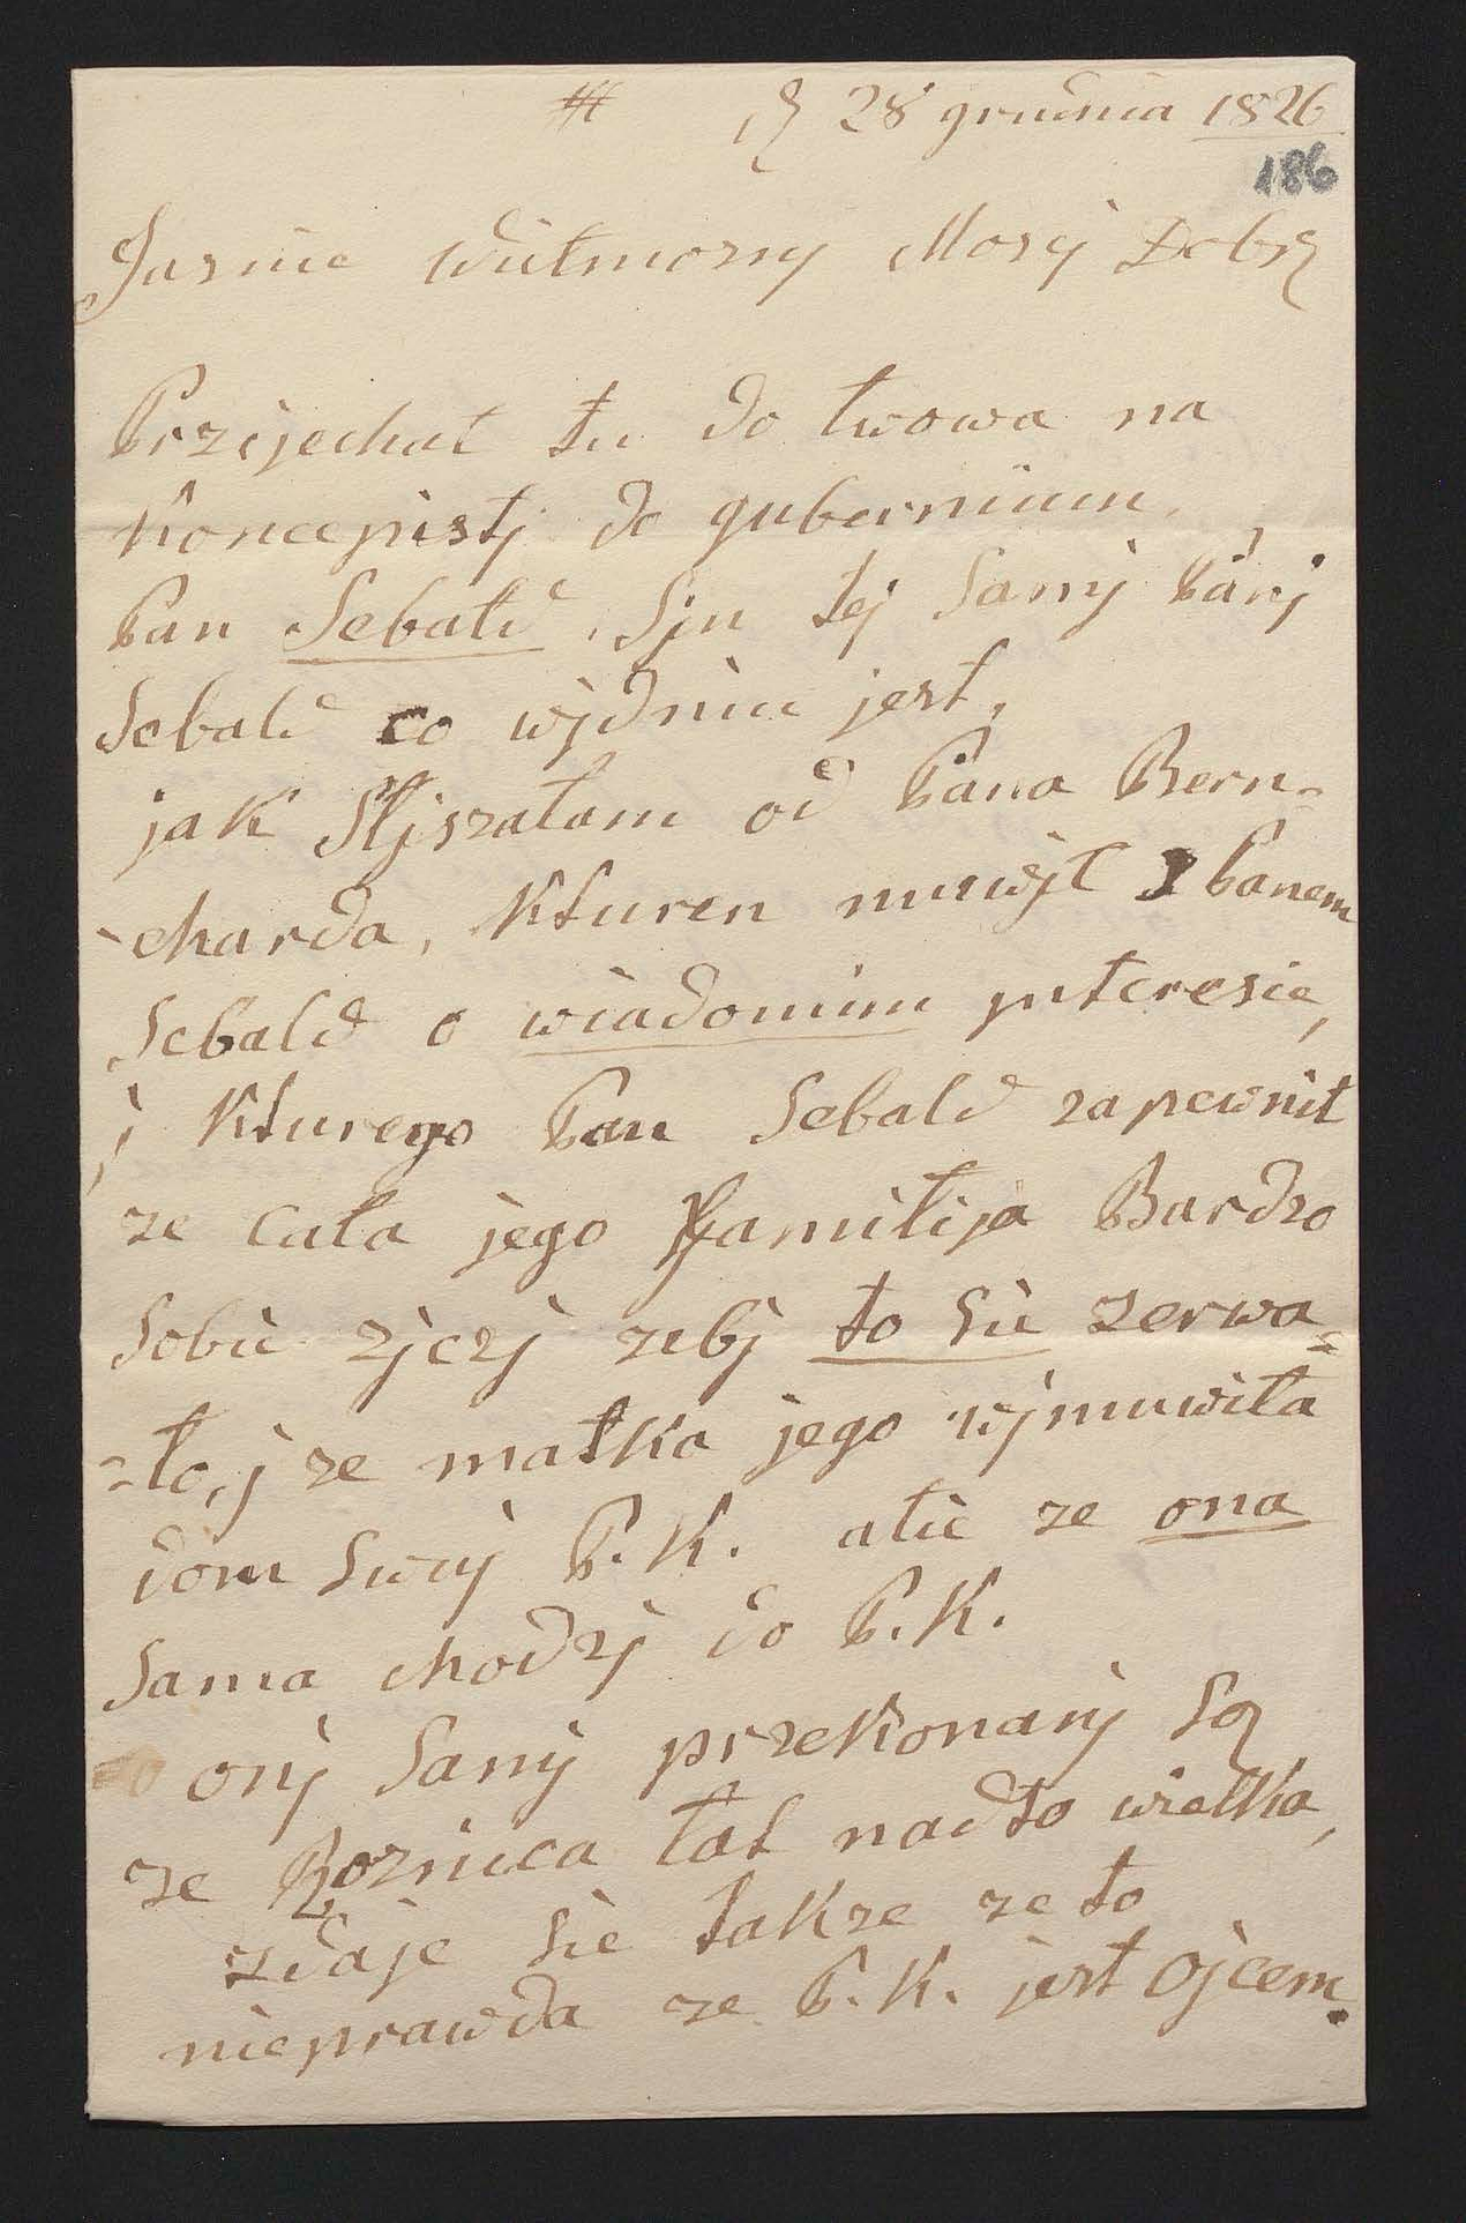 28 grudnia 1826
186
Jasnie Wielmozny Mosij Dobz
Przijechał tu do lwowa na
Koncepistj do gubernium.
Pan Sebald, Sjn tej Samj Panj
Sebald co wjdniu jest,
jak Sljszałam od Pana Bern=
-charda, Kturen muwjł z Panem
Sebald o wiadomim jnteresie,
j Kturego Pan Sebald zapewnił
ze cała jego familija Bardzo
Sobie zjczj zebj to Sie zerwa=
=ło, j ze matka jego wjmuwiła
dom Swuj P. K. alie ze ona
Sama chodzj do P. K.
onj Samj przekonanj Są
ze Roznica lat nadto wielka,
zdaje Sie takze ze to
nieprawda ze P. K. jest Ojcem.